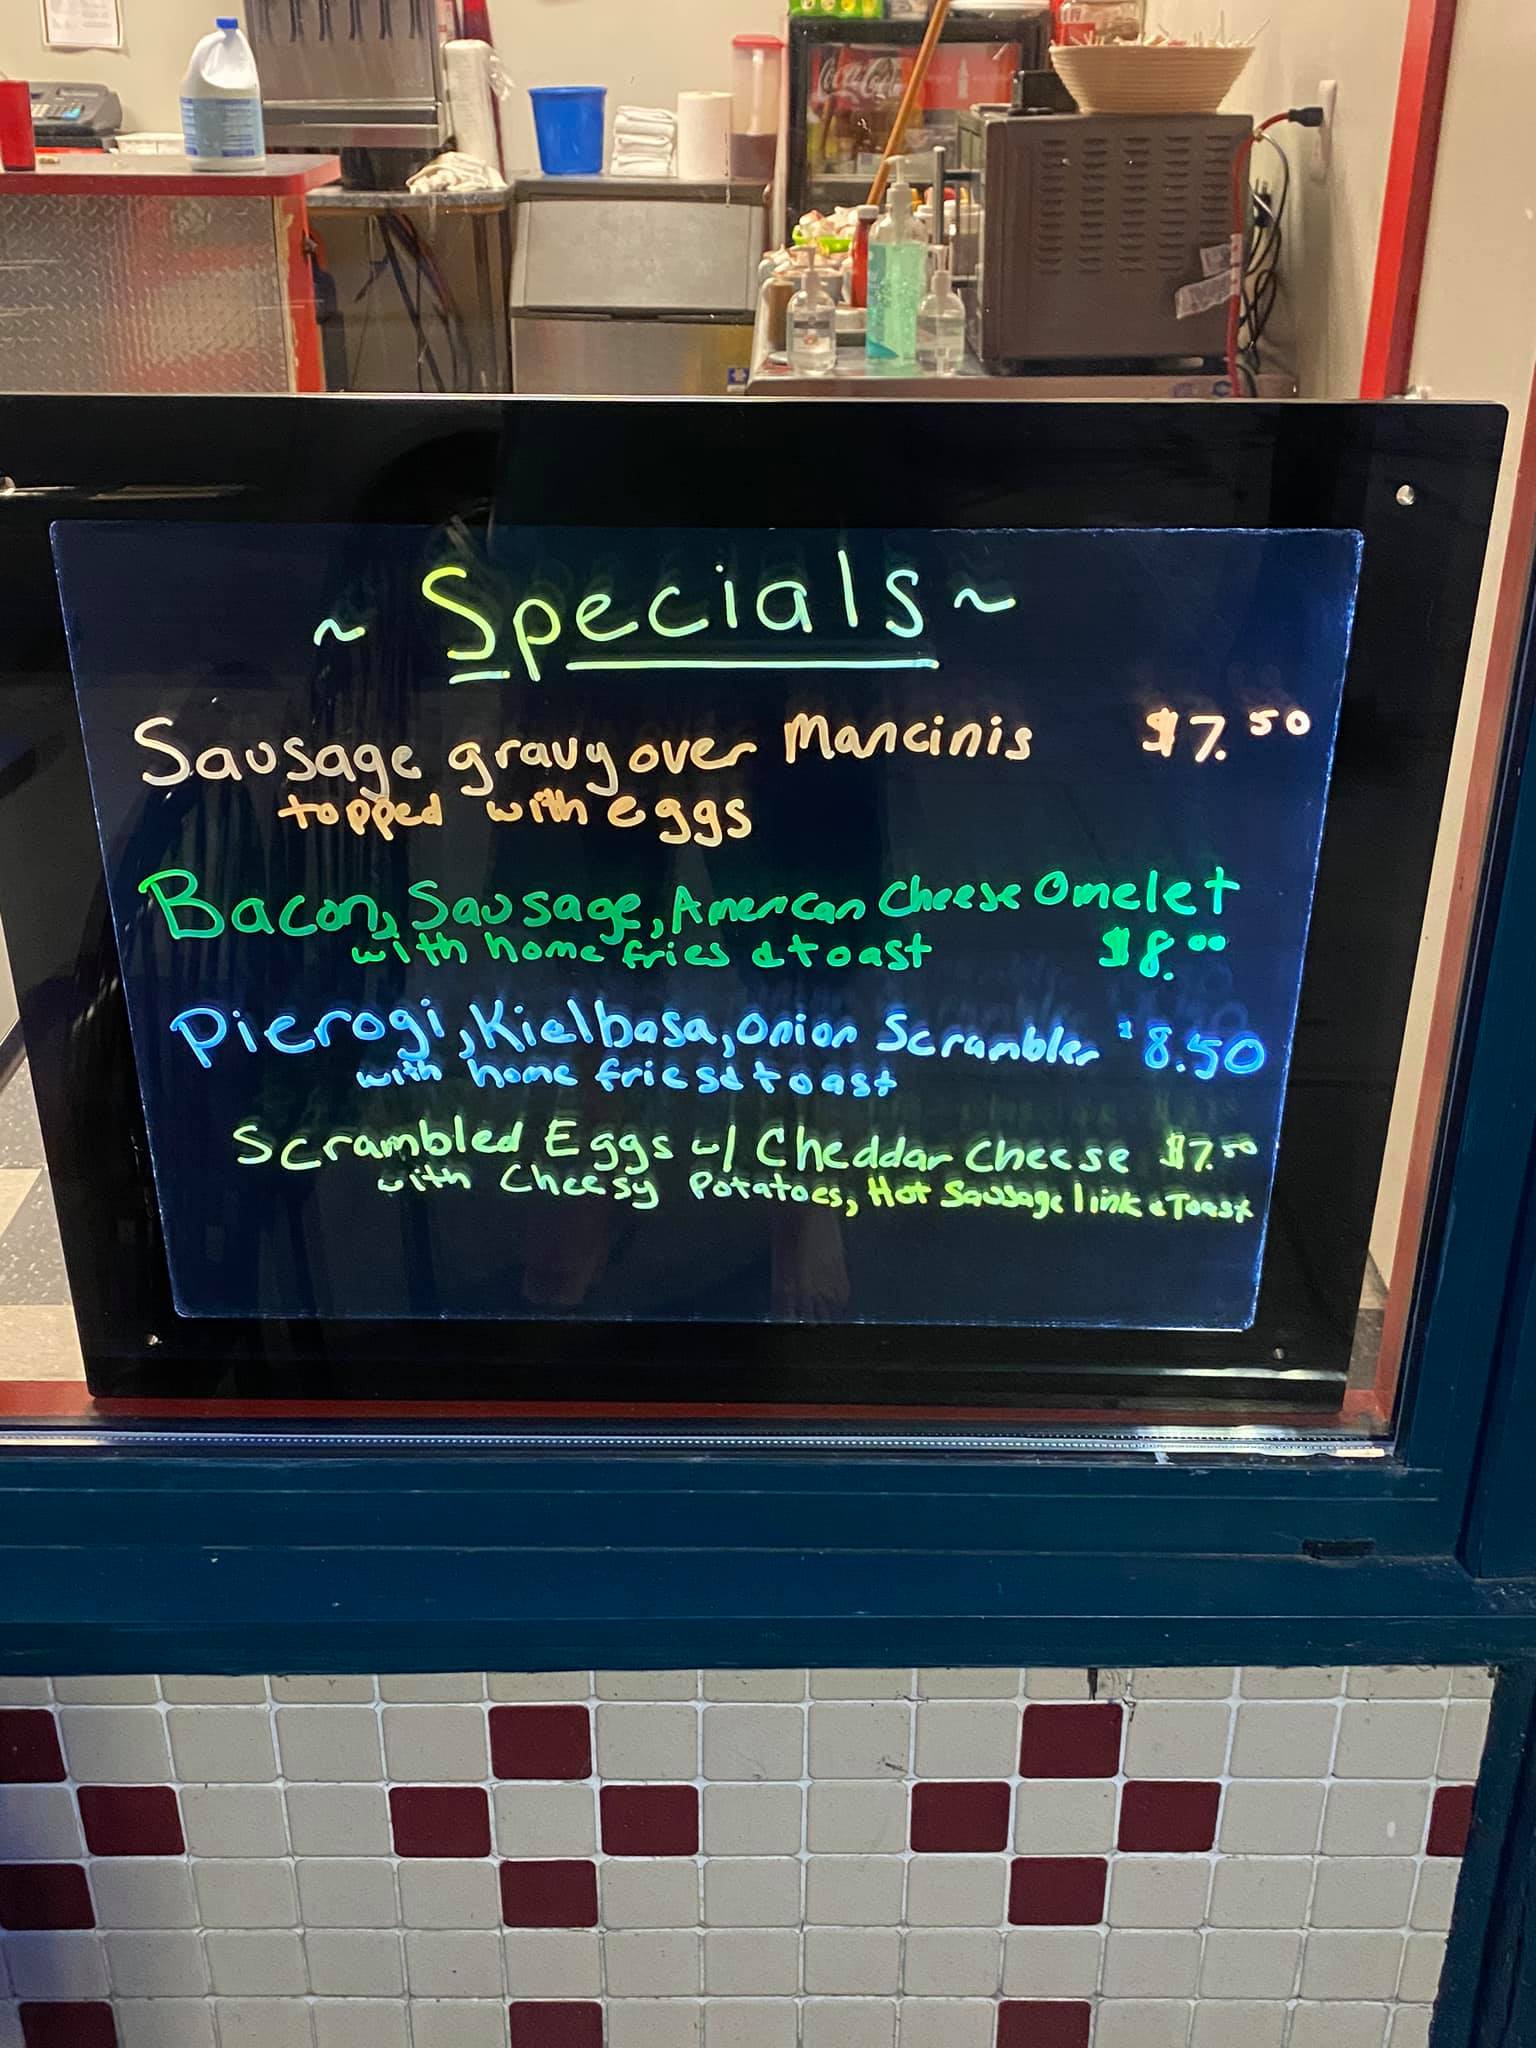 Coca-Cola
~ Specials ~
Sausage gravy over Mancinis $7.50
topped with eggs
Bacon, Sausage, American Cheese Omelet
with home fries & toast $8.00
Pierogi, Kielbasa, Onion Scrambler $8.50
with home fries & toast
Scrambled Eggs w/ Cheddar Cheese $7.50
with Cheesy Potatoes, Hot Sausage link & Toast